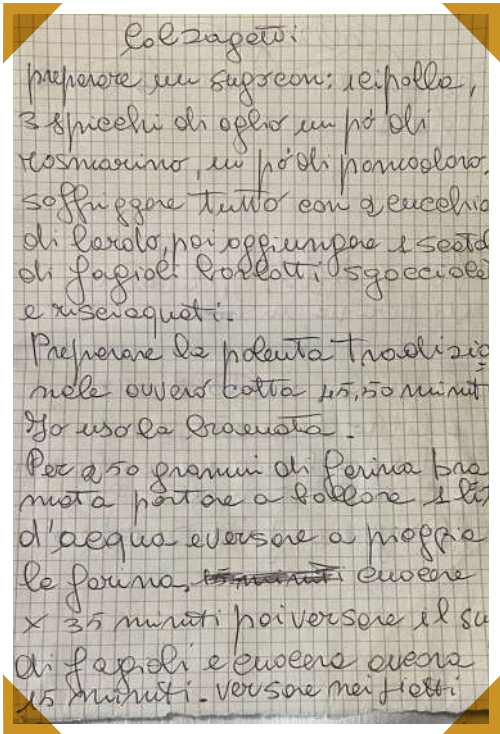 Calzagatti
preparare un sugo con: 1 cipolla,
3 spicchi di aglio un pó di
rosmarino, un pó di pomodoro.
soffriggere tutto con 2 cucchia
di lardo, poi aggiungere 1 scatol
di fagioli borlotti sgocciola
e risciaquati.
Preparare la polenta tradizio
nale ovvero cotta 45,50 minut
Io uso la bramata.
Per 250 grammi di farina bra
mata portare a bollore 1 lit
d'acqua e versare a pioggia
la farina, cuocere
x 35 minuti poi versare il su
di fagioli e cuocere ancora
15 minuti. versare nei piatti